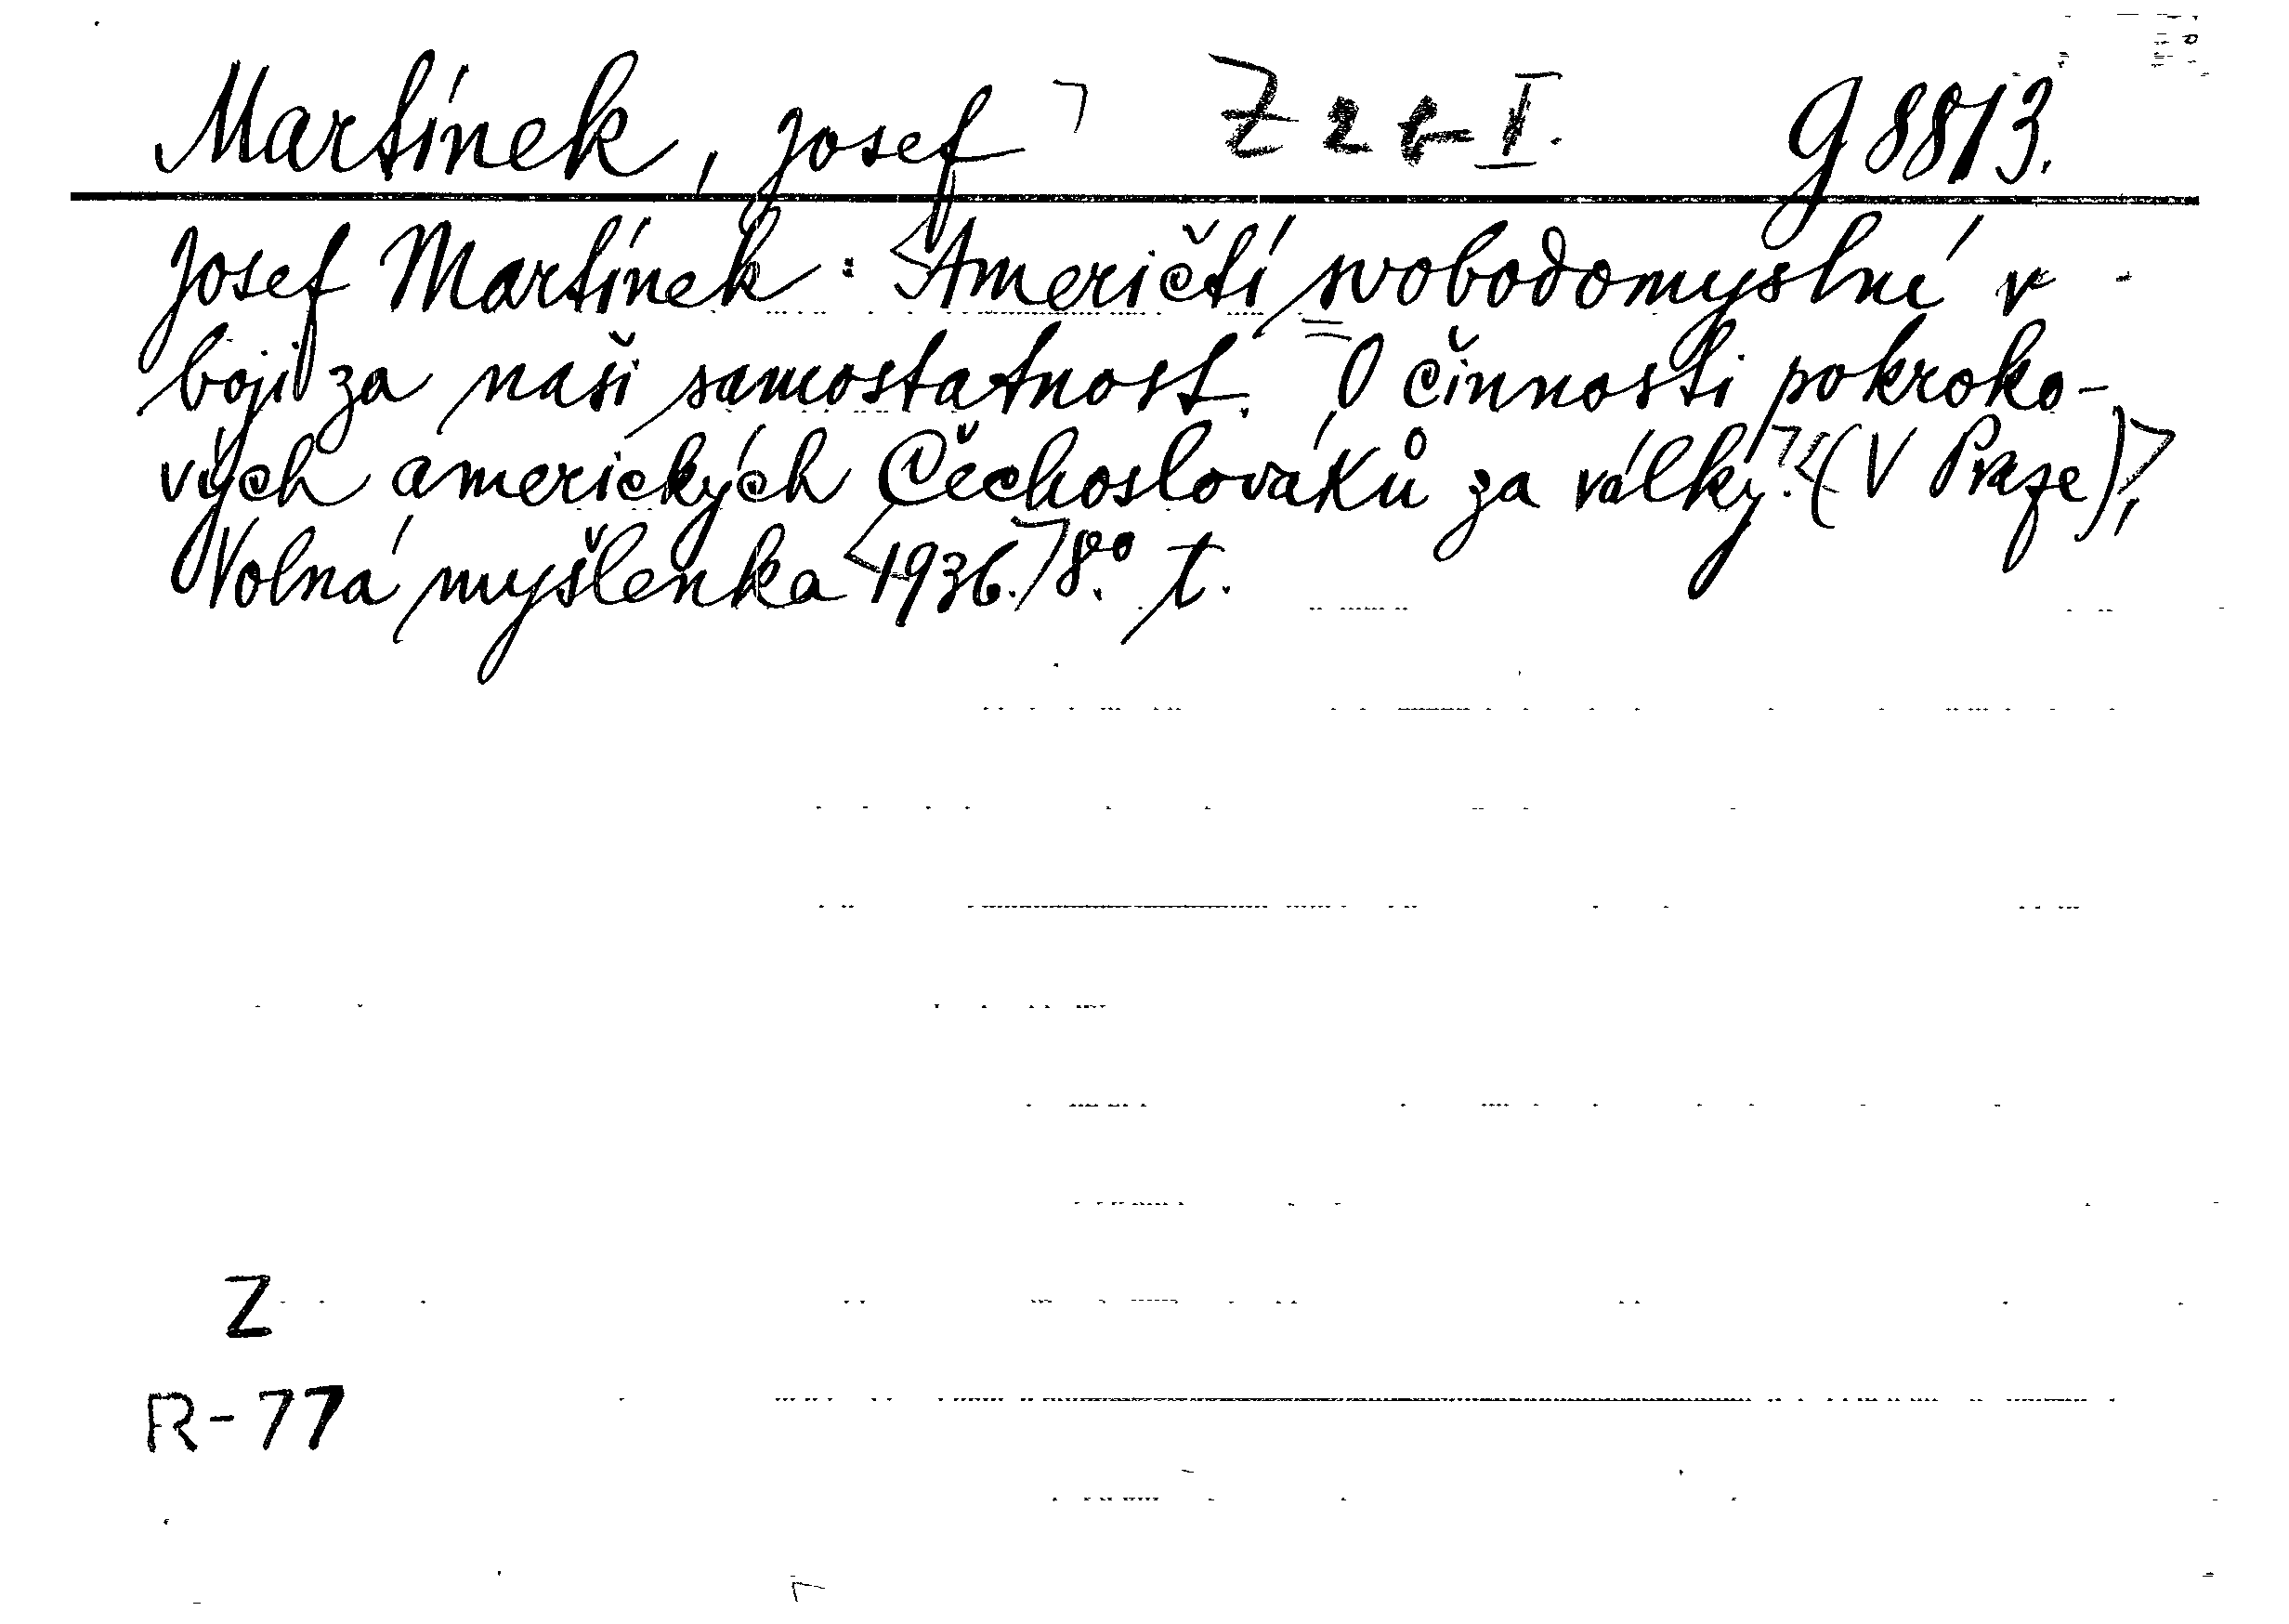 Martínek, Josef Z 2 b I. g 8813.
Josef Martínek: Američtí svobodomyslní v
boji za naši samostatnost. O činnosti pokroko-
vých amerických Čechoslováků za války. (V Praze),
Volná myšlenka 1936. 8.° t.
Z
R-77